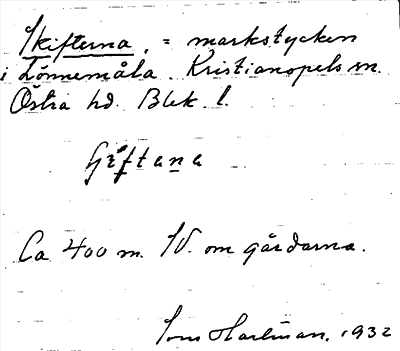 Skifterna, = markstycken
i Lönnemåla Kristianopels sn.
Östra hd. Blek. l.
Ca 400 m. SV. om gårdarna.
Hartman, 1932